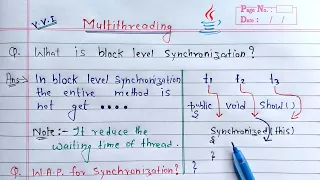 V.V.I
Multithreading
Java
Page No.
Date: / /
Q. What is block level Synchronization?
Ans → In block level Synchronization
the entire method is
not get ....
Note :- It reduce the
waiting time of thread.
Q. W.A.P. for Synchronization?
t1 t2 t3
public void Show()
{
Synchronized(this)
{
}
}